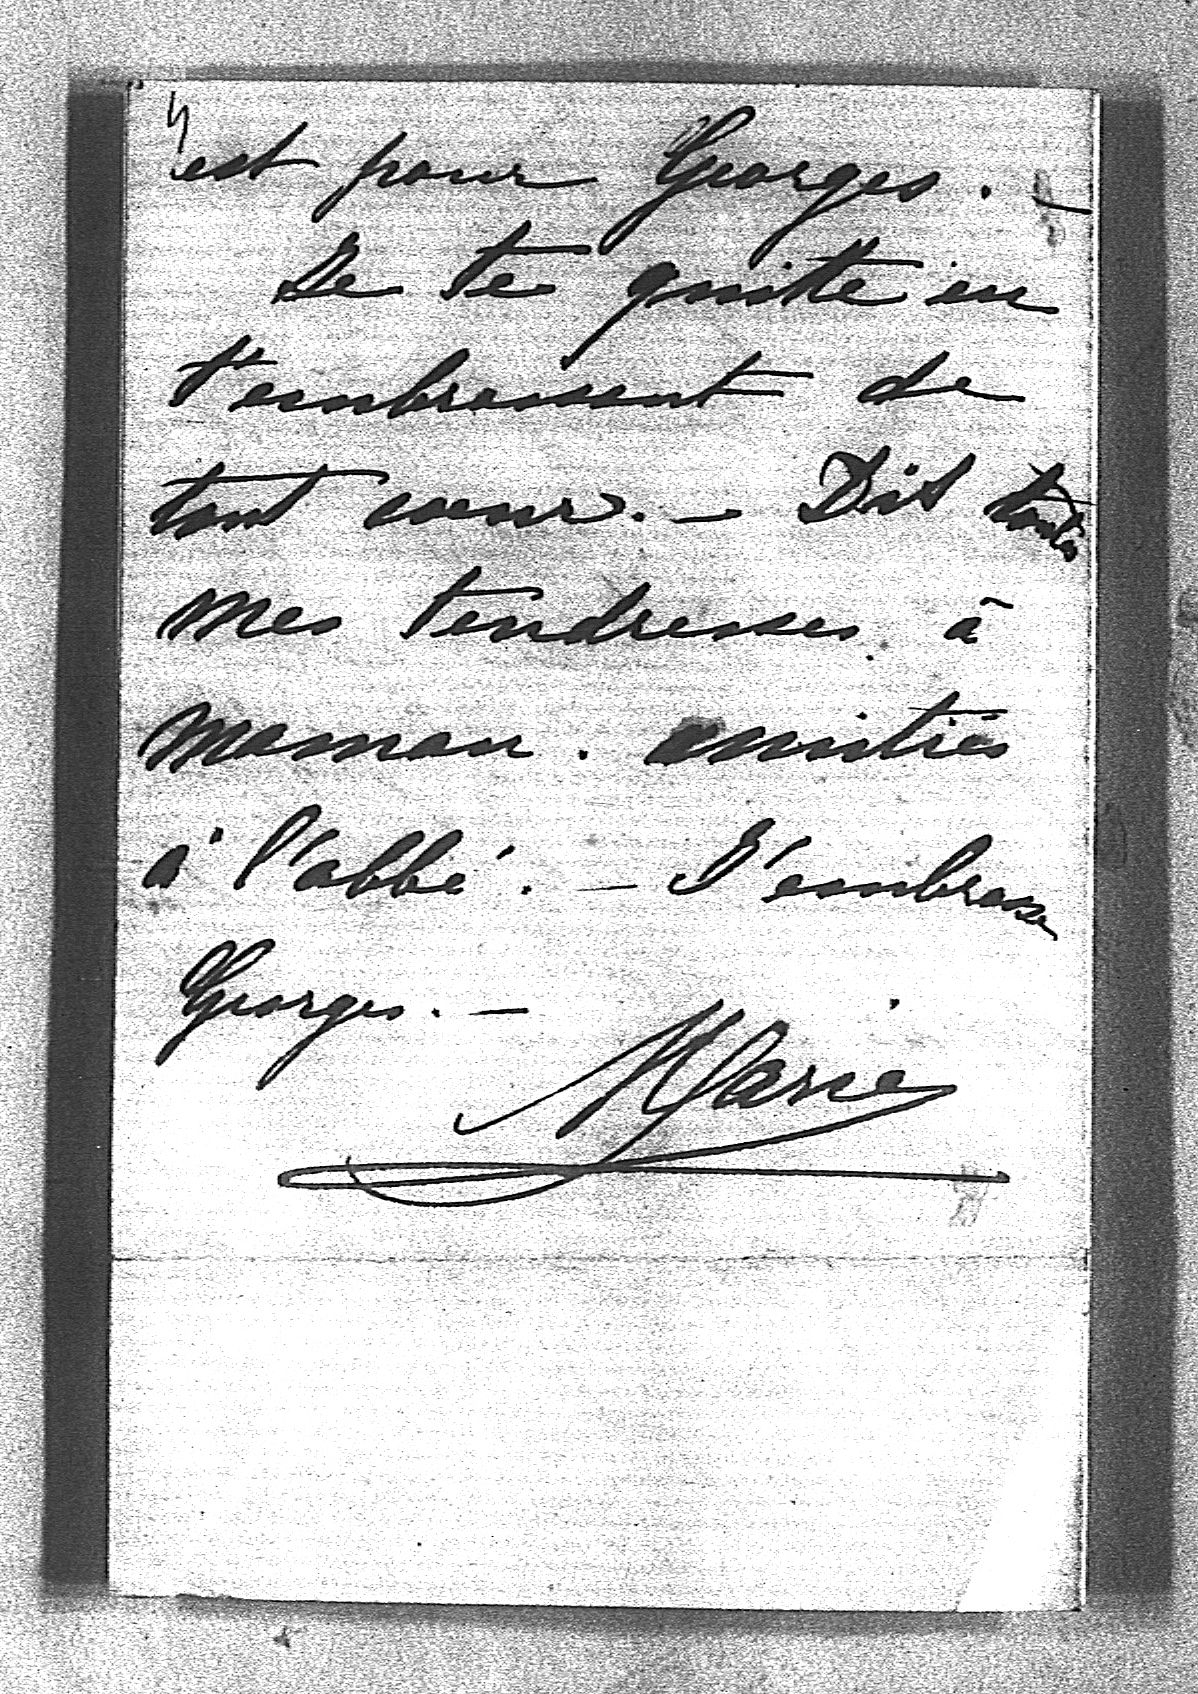 est pour Georges. —
Je te quitte en
t'embrassant de
tout cœur. — Dis toutes
mes tendresses à
maman. amitiés
à l'abbé. — J'embrasse
Georges. —
Marie